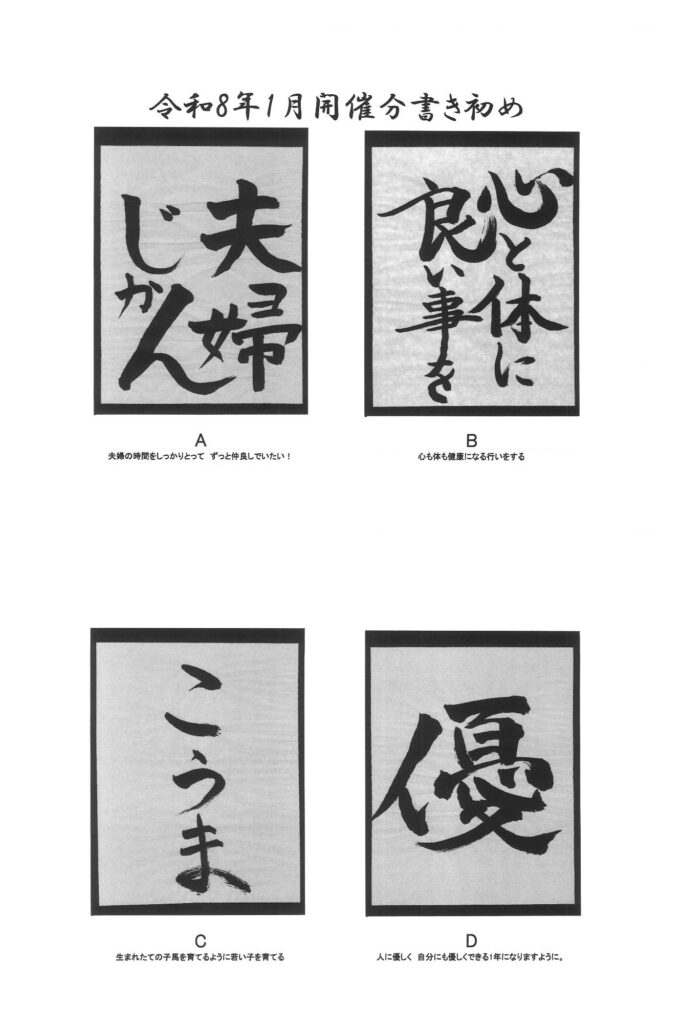 令和8年1月開催分書き初め
夫婦
じかん
A
夫婦の時間をしっかりとって ずっと仲良しでいたい！
心と体に
良い事を
B
心も体も健康になる行いをする
こうま
C
生まれたての子馬を育てるように若い子を育てる
優
D
人に優しく 自分にも優しくできる1年になりますように。